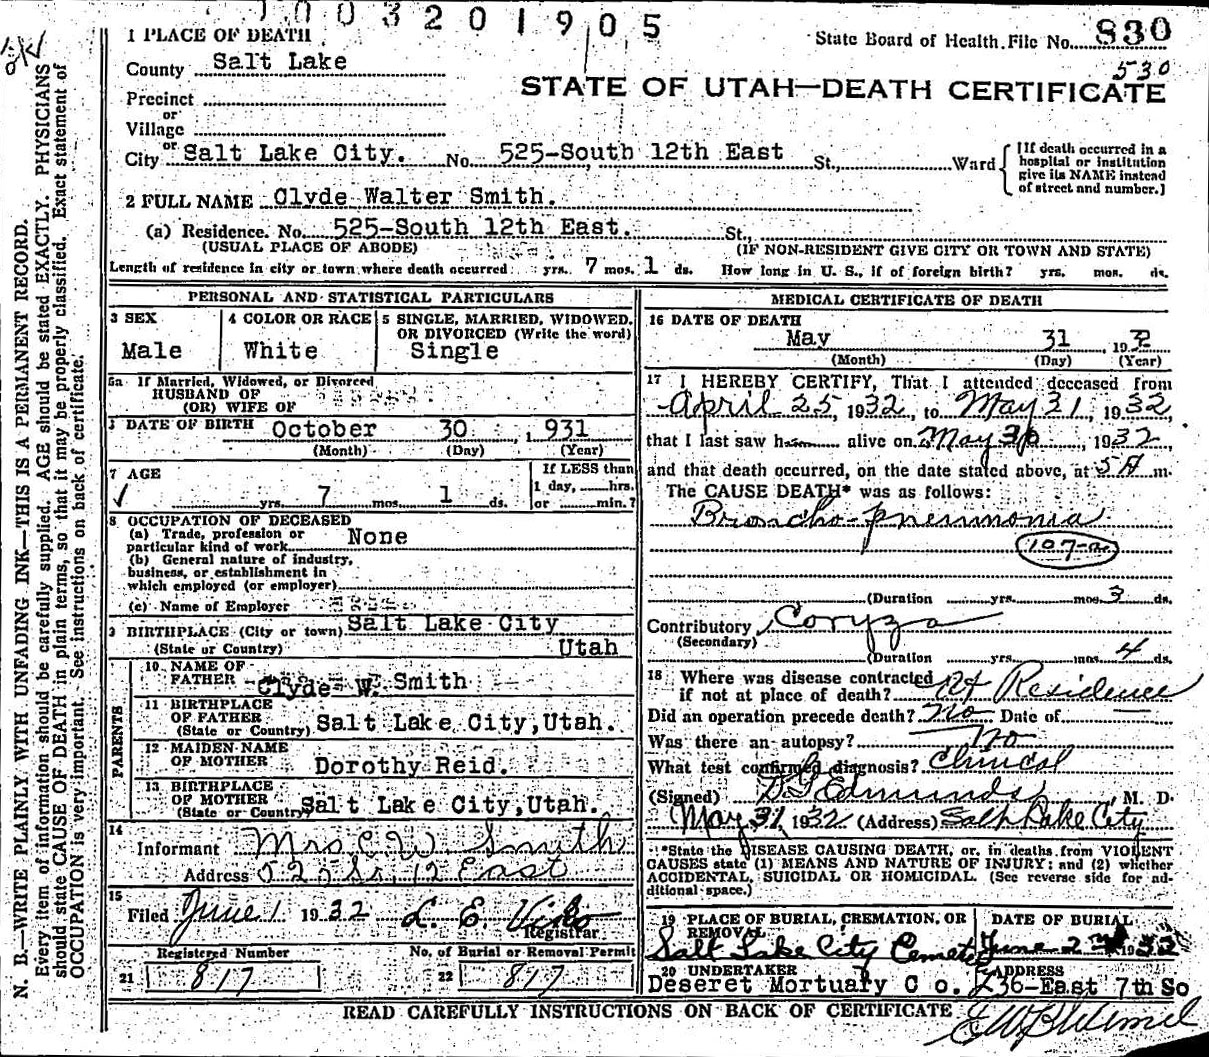 1003201905
1 PLACE OF DEATH
State Board of Health File No. 830
530
County Salt Lake
STATE OF UTAH—DEATH CERTIFICATE
Precinct
or
Village
or
City Salt Lake City. No. 525-South 12th East St., Ward
[If death occurred in a hospital or institution give its NAME instead of street and number.]
2 FULL NAME Clyde Walter Smith.
(a) Residence. No. 525-South 12th East. St.,
(USUAL PLACE OF ABODE) (IF NON-RESIDENT GIVE CITY OR TOWN AND STATE)
Length of residence in city or town where death occurred yrs. 7 mos. 1 ds. How long in U. S., if of foreign birth? yrs. mos. ds.
PERSONAL AND STATISTICAL PARTICULARS
3 SEX
Male
4 COLOR OR RACE
White
5 SINGLE, MARRIED, WIDOWED,
OR DIVORCED (Write the word)
Single
5a If Married, Widowed, or Divorced
HUSBAND OF
(OR) WIFE OF
DATE OF BIRTH October 30 , 1931
(Month) (Day) (Year)
7 AGE
yrs. 7 mos. 1 ds.
If LESS than
1 day, hrs.
or min.?
8 OCCUPATION OF DECEASED
(a) Trade, profession or
particular kind of work None
(b) General nature of industry,
business, or establishment in
which employed (or employer)
(c) Name of Employer
9 BIRTHPLACE (City or town) Salt Lake City
(State or Country) Utah
PARENTS
10 NAME OF
FATHER Clyde W. Smith
11 BIRTHPLACE
OF FATHER
(State or Country) Salt Lake City, Utah.
12 MAIDEN NAME
OF MOTHER Dorothy Reid.
13 BIRTHPLACE
OF MOTHER
(State or Country) Salt Lake City, Utah.
14
Informant Mrs C W Smith
Address 525 So, 12 East
15
Filed June 1 1932 L. E. Viko
Registrar
Registered Number No. of Burial or Removal Permit
21 817 22 817
MEDICAL CERTIFICATE OF DEATH
16 DATE OF DEATH
May 31 , 1932
(Month) (Day) (Year)
17 I HEREBY CERTIFY, That I attended deceased from
April 25, 1932, to May 31, 1932,
that I last saw him alive on May 30, 1932
and that death occurred, on the date stated above, at 5 A m.
The CAUSE DEATH* was as follows:
Broncho-pneumonia
107-a
(Duration yrs. mos. 3 ds.
Contributory Coryza
(Secondary)
(Duration yrs. mos. 4 ds.
18 Where was disease contracted
if not at place of death? At Residence
Did an operation precede death? No Date of —
Was there an autopsy? No
What test confirmed diagnosis? Clinical
(Signed) D G Edmunds , M. D.
May 31, 1932 (Address) Salt Lake City
*State the DISEASE CAUSING DEATH, or, in deaths from VIOLENT
CAUSES state (1) MEANS AND NATURE OF INJURY; and (2) whether
ACCIDENTAL, SUICIDAL OR HOMICIDAL. (See reverse side for ad-
ditional space.)
19 PLACE OF BURIAL, CREMATION, OR
REMOVAL
Salt Lake City Cemetery
DATE OF BURIAL
June 2nd 1932
20 UNDERTAKER
Deseret Mortuary Co.
ADDRESS
36-East 7th So
READ CAREFULLY INSTRUCTIONS ON BACK OF CERTIFICATE
N. B.—WRITE PLAINLY WITH UNFADING INK—THIS IS A PERMANENT RECORD.
Every item of information should be carefully supplied. AGE should be stated EXACTLY. PHYSICIANS
should state CAUSE OF DEATH in plain terms, so that it may be properly classified. Exact statement of
OCCUPATION is very important. See instructions on back of certificate.